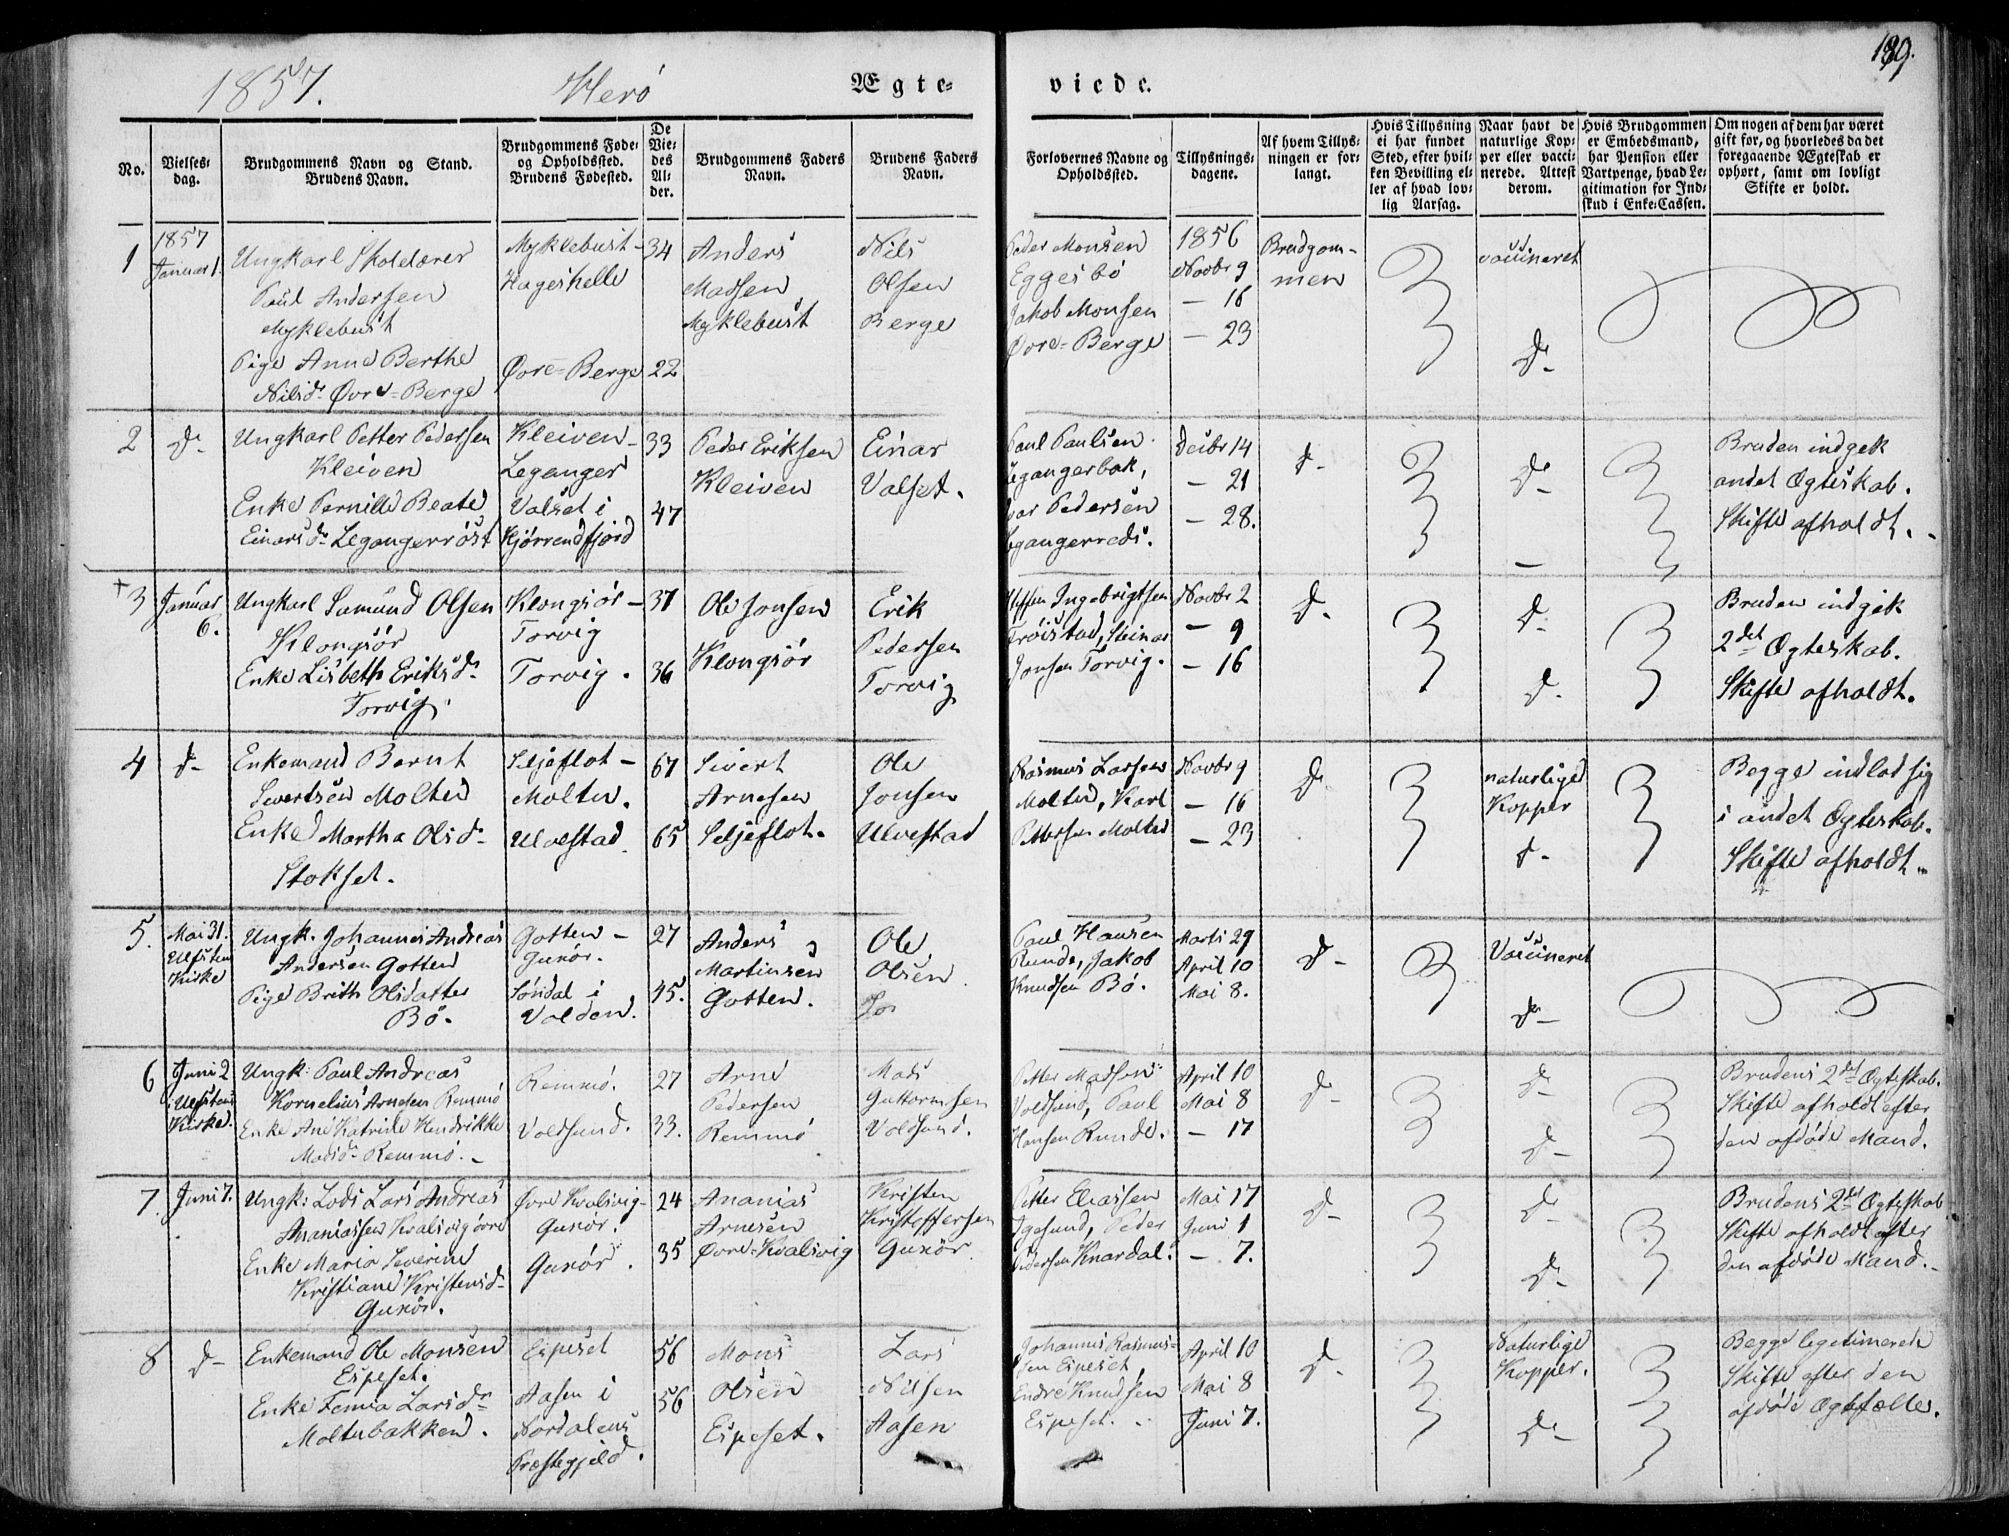 189.
1857. Herö Ægte- viede.
No.
Vielses-
dag.
Brudgommens Navn og Stand.
Brudens Navn.
Brudgommens Føde-
og Opholdssted.
Brudens Fødested.
De
Vie-
des
Al-
der.
Brudgommens Faders
Navn.
Brudens Faders
Navn.
Forlovernes Navne og
Opholdssted.
Tillysnings-
dagene.
Af hvem Tillys-
ningen er for-
langt.
Hvis Tillysning
ei har fundet
Sted, efter hvil-
ken Bevilling el-
ler af hvad lov-
lig Aarsag.
Naar havt de
naturlige Kop-
per eller vacci-
nerede. Attest
derom.
Hvis Brudgommen
er Embedsmand,
har Pension eller
Vartpenge, hvad Le-
gitimation for Ind-
skud i Enke-Cassen.
Om nogen af dem har været
gift før, og hvorledes da det
foregaaende Ægteskab er
ophørt, samt om lovligt
Skifte er holdt.
1
1857
Januar 1.
Ungkarl Skolelærer
Paul Andersen
Myklebust
Pige Anne Berthe
Nilsd. Øvre-Berge
Myklebust-
Hageskelle
Øvre-Berge
34
22
Anders
Madsen
Myklebust
Nils
Olsen
Berge
Peder Monsen
Eggesbö
Jakob Monsen
Øvre-Berge
1856
Novbr 9
— 16
— 23
Brudgom-
men
vaccineret
D-
2
D-
Ungkarl Petter Pedersen
Kleiven
Enke Pernille Beate
Einarsd. Legangerröst
Kleiven-
Leganger
Valset i
Hjörrendfjord
33
47
Peder Eriksen
Kleiven
Einar
Valset.
Paul Paulsen
Legangerbak,
Ivar Pedersen
Decbr 14
— 21
— 28.
d-
D-
—
Bruden indgik
andet Ægteskab.
Skifte afholdt.
+3
Januar
6.
Ungkarl Samund Olsen
Klongsör
Enke Lisbeth Eriksd.
Torvig.
Klongsör-
Torvig
Torvig.
37
36
Ole Jonsen
Klongsör
Erik
Pedersen
Torvig
Steffen Ingebrigtsen
Tröistad, Steinar
Jonsen Torvig.
Novbr 2
— 9
— 16
D-
D-
D.
Bruden indgik
2det Ægteskab.
Skifte afholdt.
4
d-
Enkemand Bernt
Sivertsen Molteu
Enke Martha Olsd.
Stokset.
Seljeflot-
Molteu.
Ulvestad
67
65
Sivert
Arnesen
Seljeflot.
Ole
Jonsen
Ulvestad
Rasmus Larsen
Molteu, Karl
Pettersen Molteu
Novbr 9
— 16
— 23
D-
naturlige
Kopper
d-
Begge indlod sig
i andet Ægteskab.
Skifte afholdt.
5.
Mai 31.
Ulfsten
Kirke
Ungk. Johannes Andreas
Andersen Gotten
Pige Brith Olsdatter
Bö.
Gotten-
Gurör.
Söndal i
Volden.
27
45.
Anders
Martinsen
Gotten.
Ole
Olsen
Paul Hansen
Runde, Jakob
Knudsen Bö.
Marts 29
April 10
Mai 8.
D-
Vaccineret
D-
6
Juni 2
i Ulfsten
Kirke.
Ungk. Paul Andreas
Kornelius Arnesen Remmö
Enke Ane Katrine Hendrikke
Madsd. Remmö.
Remmö.
Voldsund.
27
33.
Arne
Pedersen
Remmö
Mads
Guttormsen
Voldsund.
Petter Madsen
Voldsund, Paul
Hansen Runde.
April 10
Mai 8
— 17
D-
D-
D-
Brudens 2det Ægteskab.
Skifte afholdt efter
den afdöde Mand.
7.
Juni 7.
Ungk: Lods Lars Andreas
Ananiassen Kvalsvig övre
Enke Maria Severine
Kristiane Kristensd.
Gurör.
Øvre Kvalsvig-
Gurör.
Gurör.
24
35
Ananias
Arnesen
Øvre-Kvalsvig
Kristen
Kristoffersen
Gurör
Petter Eliassen
Igesund, Peder
Pedersen Knardal.
Mai 17
Juni 1
— 7.
D-
D-
D-
Brudens 2det Ægteskab
Skifte afholdt efter
den afdöde Mand.
8
D-
Enkemand Ole Monsen
Espeset.
Enke Femia Larsd.
Moltubakken.
Espeset
Aasen i
Nordalens
Præstegjeld.
56
56
Mons
Olsen
Espeset.
Lars
Nilsen
Aasen
Johannes Rasmus-
sen Espeset
Endre Knudsen
Espeset.
April 10
Mai 8
Juni 7.
D-
Naturlige
Kopper.
D-
Begge legitimerede
Skifte efter den
afdöde Ægtefælle.